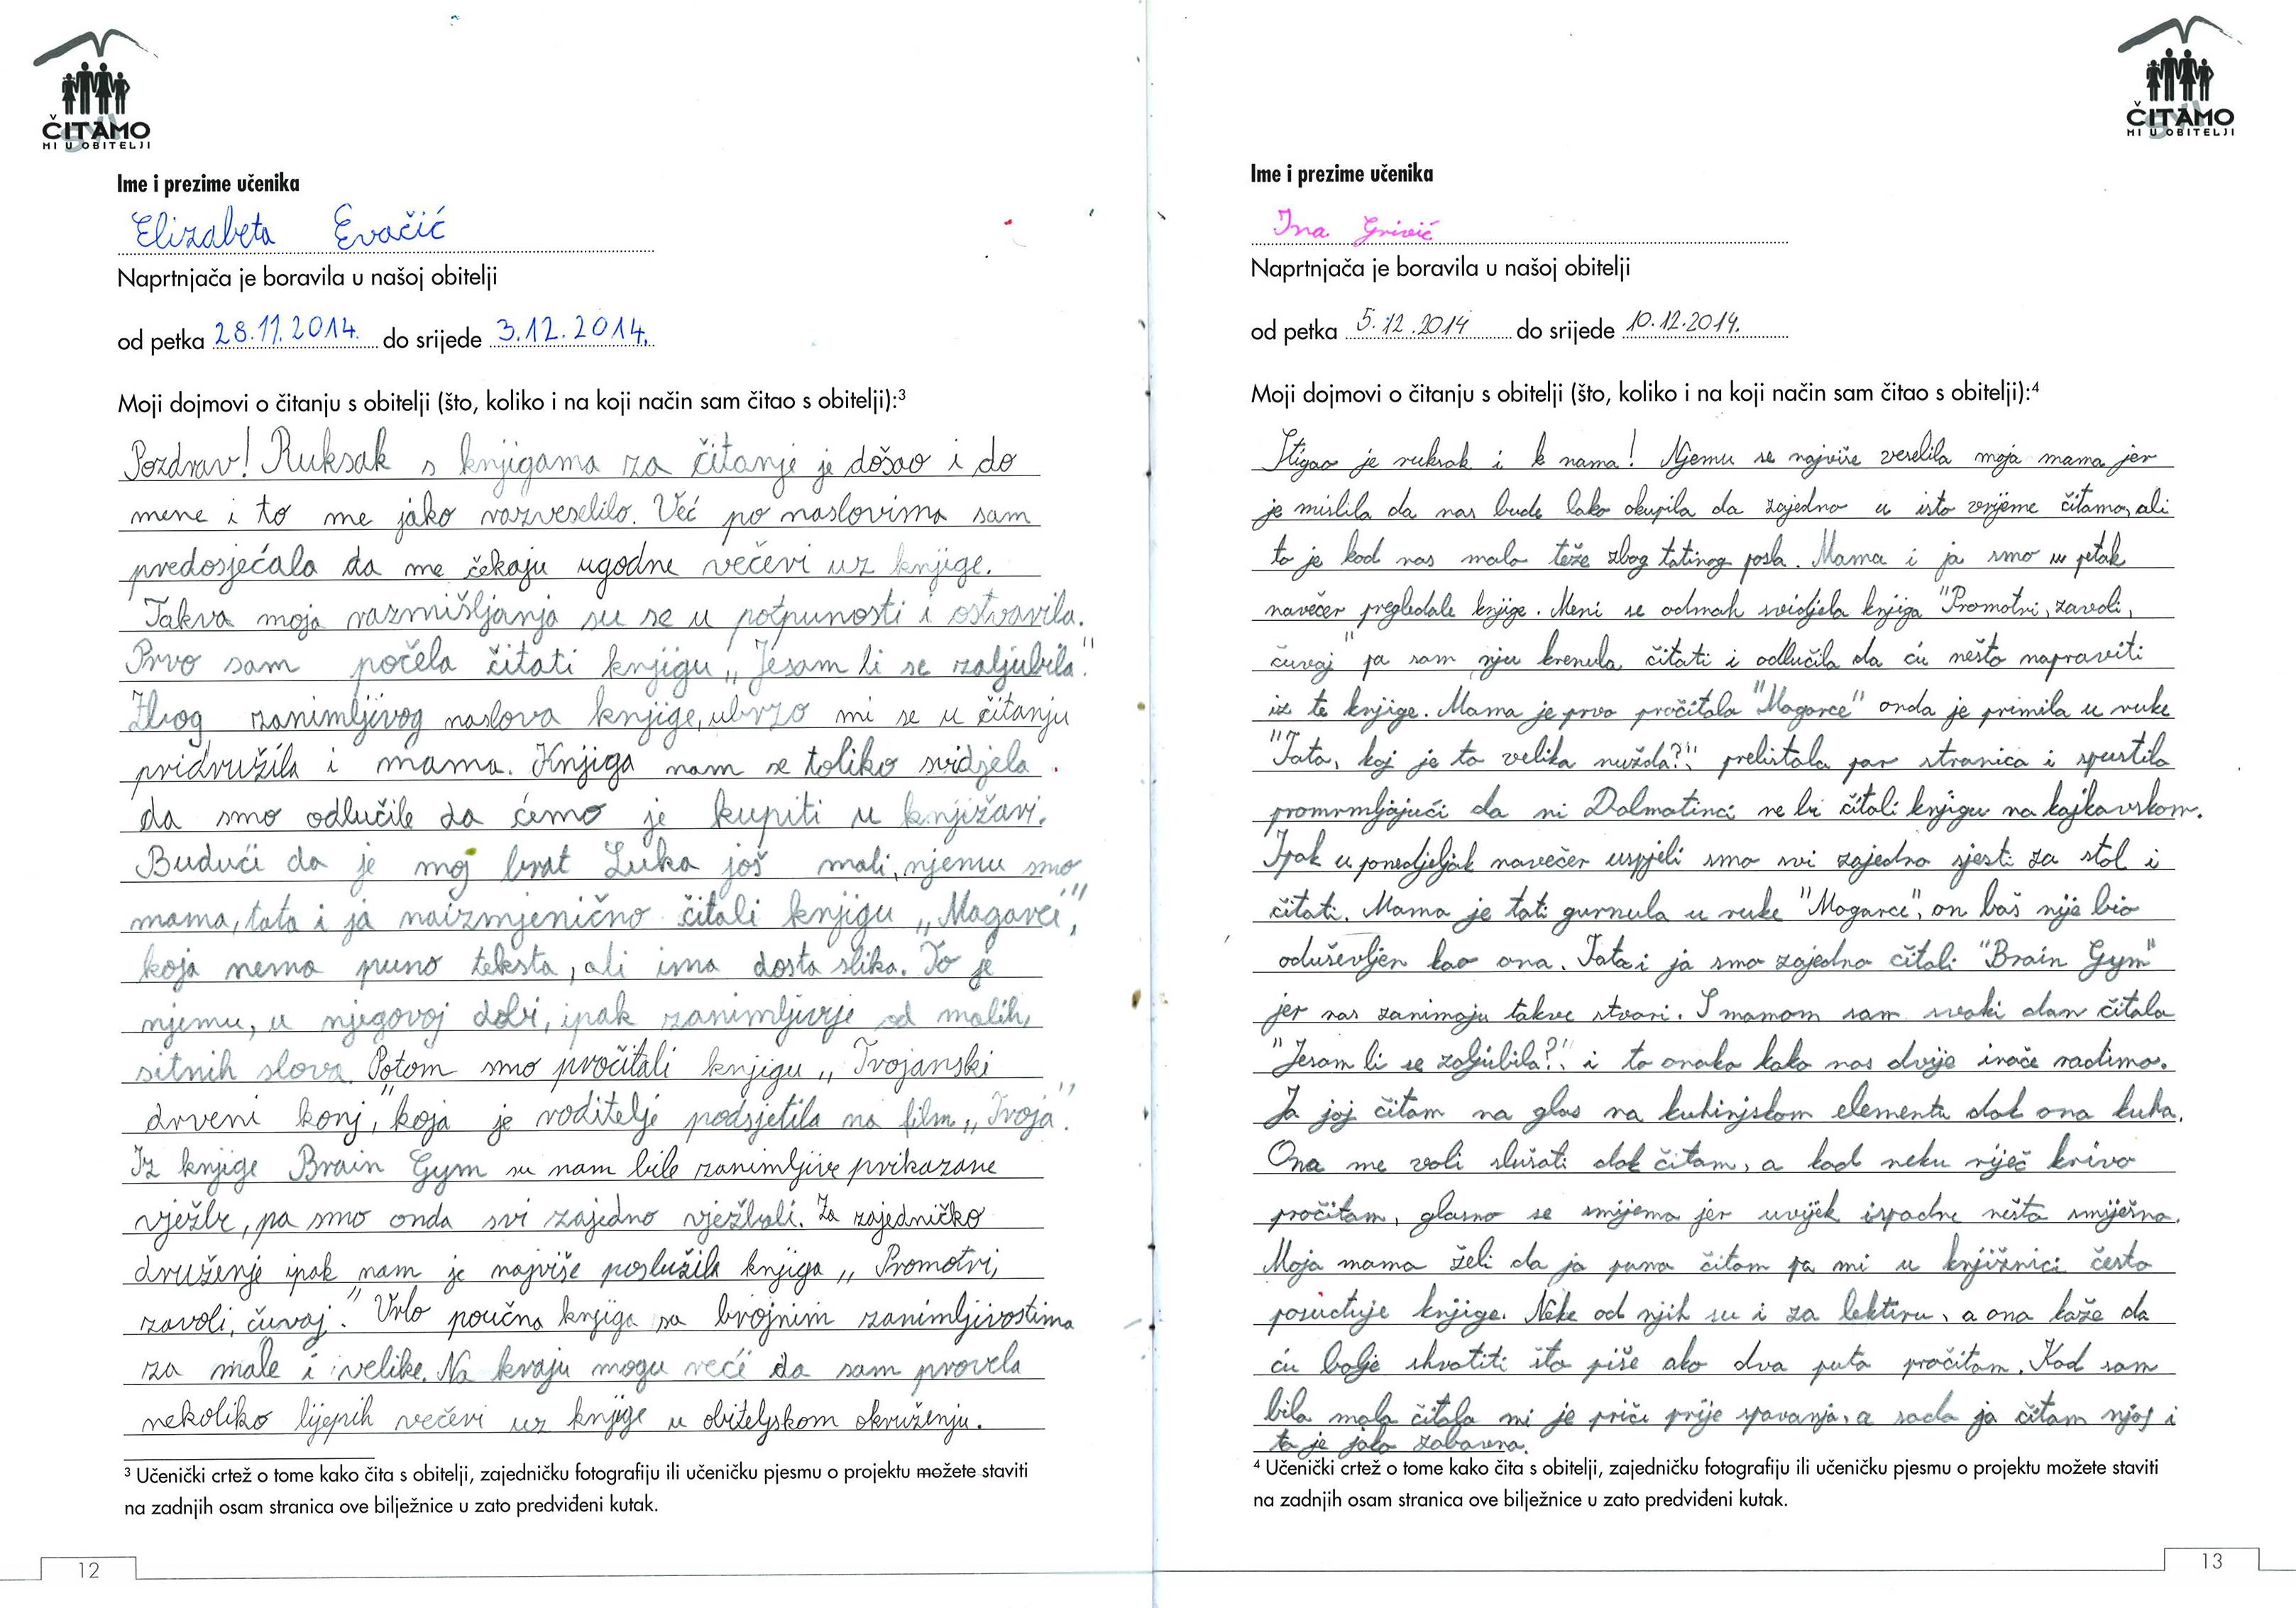 ČITAMO
MI U OBITELJI
Ime i prezime učenika
Elizabeta Evačić
Naprtnjača je boravila u našoj obitelji
od petka 28.11.2014. do srijede 3.12.2014.
Moji dojmovi o čitanju s obitelji (što, koliko i na koji način sam čitao s obitelji):³
Pozdrav! Ruksak s knjigama za čitanje je došao i do
mene i to me jako razveselilo. Već po naslovima sam
predosjećala da me čekaju ugodne večeri uz knjige.
Takva moja razmišljanja su se u potpunosti i ostvarila.
Prvo sam počela čitati knjigu „Jesam li se zaljubila".
Zbog zanimljivog naslova knjige, ubrzo mi se u čitanju
pridružila i mama. Knjiga nam se toliko svidjela
da smo odlučile da ćemo je kupiti u knjižari.
Budući da je moj brat Luka još mali, njemu smo
mama, tata i ja naizmjenično čitali knjigu „Magarci",
koja nema puno teksta, ali ima dosta slika. To je
njemu, u njegovoj dobi, ipak zanimljivije od malih,
sitnih slova. Potom smo pročitali knjigu „Trojanski
drveni konj", koja je roditelje podsjetila na film „Troja".
Iz knjige Brain Gym su nam bile zanimljive prikazane
vježbe, pa smo onda svi zajedno vježbali. Za zajedničko
druženje ipak nam je najviše poslužila knjiga „Promotri,
zavoli, čuvaj." Vrlo poučna knjiga sa brojnim zanimljivostima
za male i velike. Na kraju mogu reći da sam provela
nekoliko lijepih večeri uz knjige u obiteljskom okruženju.
³ Učenički crtež o tome kako čita s obitelji, zajedničku fotografiju ili učeničku pjesmu o projektu možete staviti
na zadnjih osam stranica ove bilježnice u zato predviđeni kutak.
12
ČITAMO
MI U OBITELJI
Ime i prezime učenika
Ina Grivić
Naprtnjača je boravila u našoj obitelji
od petka 5.12.2014 do srijede 10.12.2014.
Moji dojmovi o čitanju s obitelji (što, koliko i na koji način sam čitao s obitelji):⁴
Stigao je ruksak i k nama! Njemu se najviše veselila moja mama jer
je mislila da nas bude lako okupila da zajedno u isto vrijeme čitamo, ali
to je kod nas malo teže zbog tatinog posla. Mama i ja smo u petak
navečer pregledale knjige. Meni se odmah svidjela knjiga "Promotri, zavoli,
čuvaj" pa sam nju krenula čitati i odlučila da ću nešto napraviti
iz te knjige. Mama je prvo pročitala "Magarce" onda je primila u ruke
"Tata, kaj je to velika nužda?", prelistala par stranica i spustila
promrmljajući da ni Dalmatinci ne bi čitali knjigu na kajkavskom.
Ipak u ponedjeljak navečer uspjeli smo svi zajedno sjesti za stol i
čitati. Mama je tati gurnula u ruke "Magarce", on baš nije bio
oduševljen kao ona. Tata i ja smo zajedno čitali "Brain Gym"
jer nas zanimaju takve stvari. S mamom sam svaki dan čitala
"Jesam li se zaljubila?", i to onako kako nas dvije inače radimo.
Ja joj čitam na glas na kuhinjskom elementu dok ona kuha.
Ona me voli slušati dok čitam, a kad neku riječ krivo
pročitam, glasno se smijemo jer uvijek ispadne nešto smiješno.
Moja mama želi da ja puno čitam pa mi u knjižnici često
posuđuje knjige. Neke od njih su i za lektiru, a ona kaže da
ću bolje shvatiti što piše ako dva puta pročitam. Kad sam
bila mala čitala mi je priče prije spavanja, a sada ja čitam njoj i
to je jako zabavno.
⁴ Učenički crtež o tome kako čita s obitelji, zajedničku fotografiju ili učeničku pjesmu o projektu možete staviti
na zadnjih osam stranica ove bilježnice u zato predviđeni kutak.
13